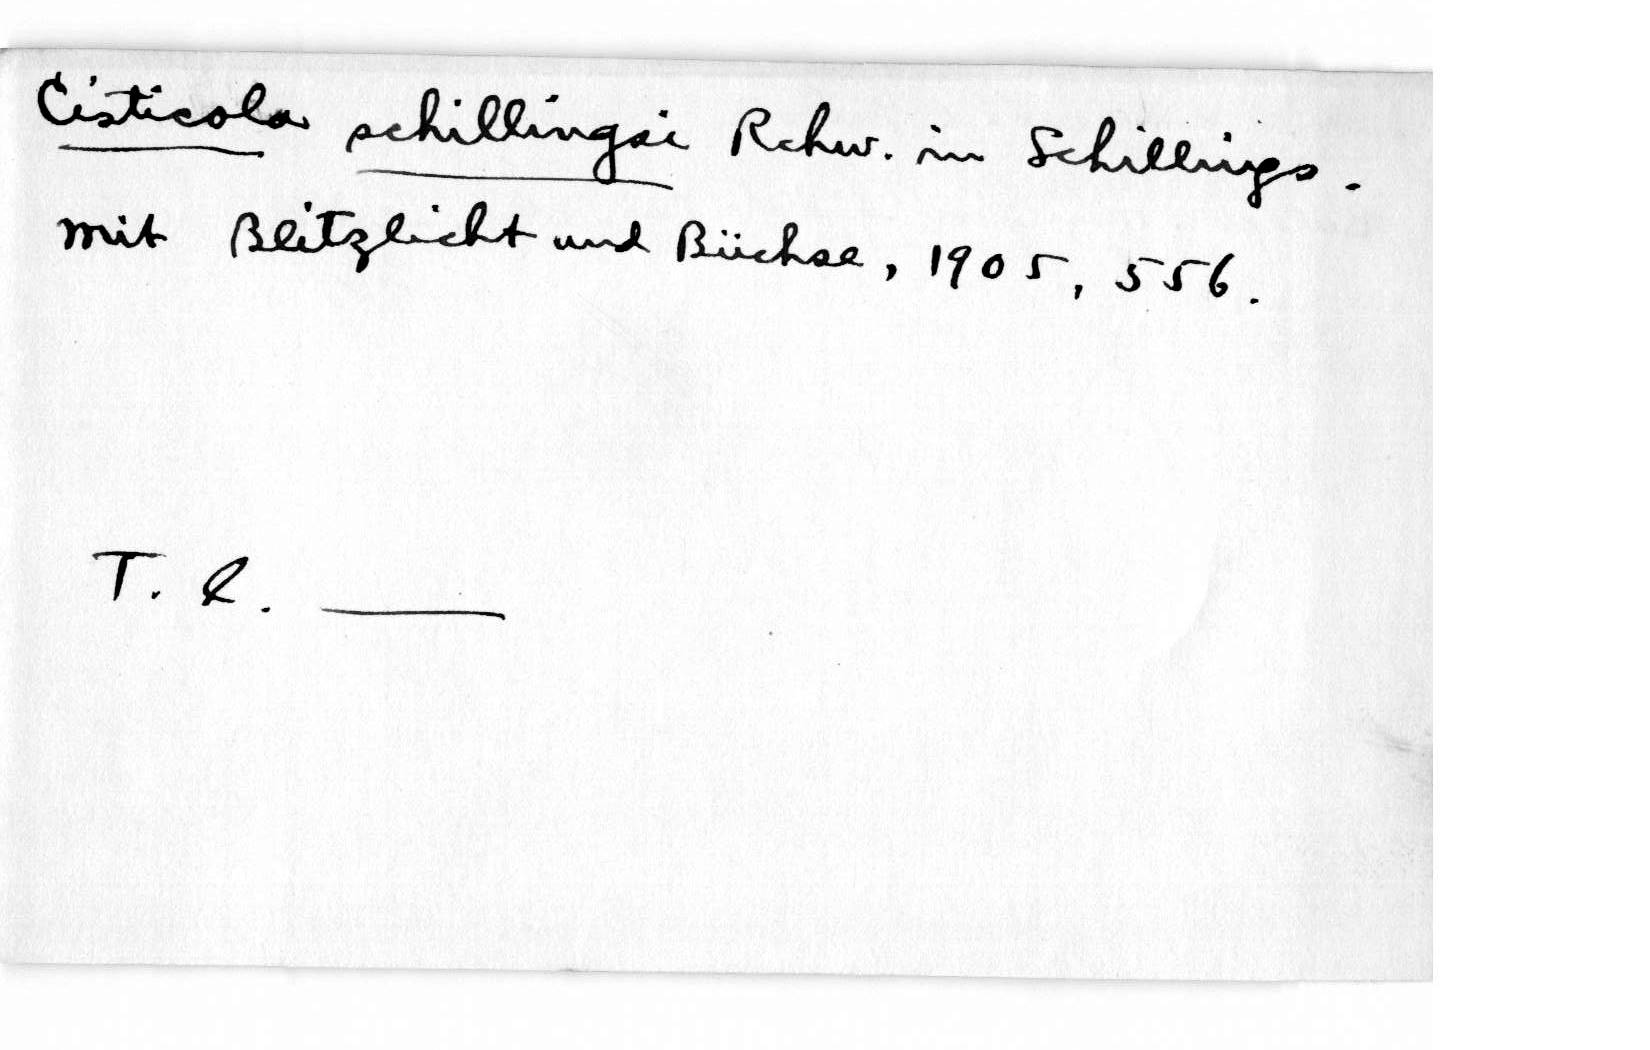 Cisticola schillingsi Rchw. in Schillings.
Mit Blitzlicht und Büchse, 1905, 556.
T. l. ____